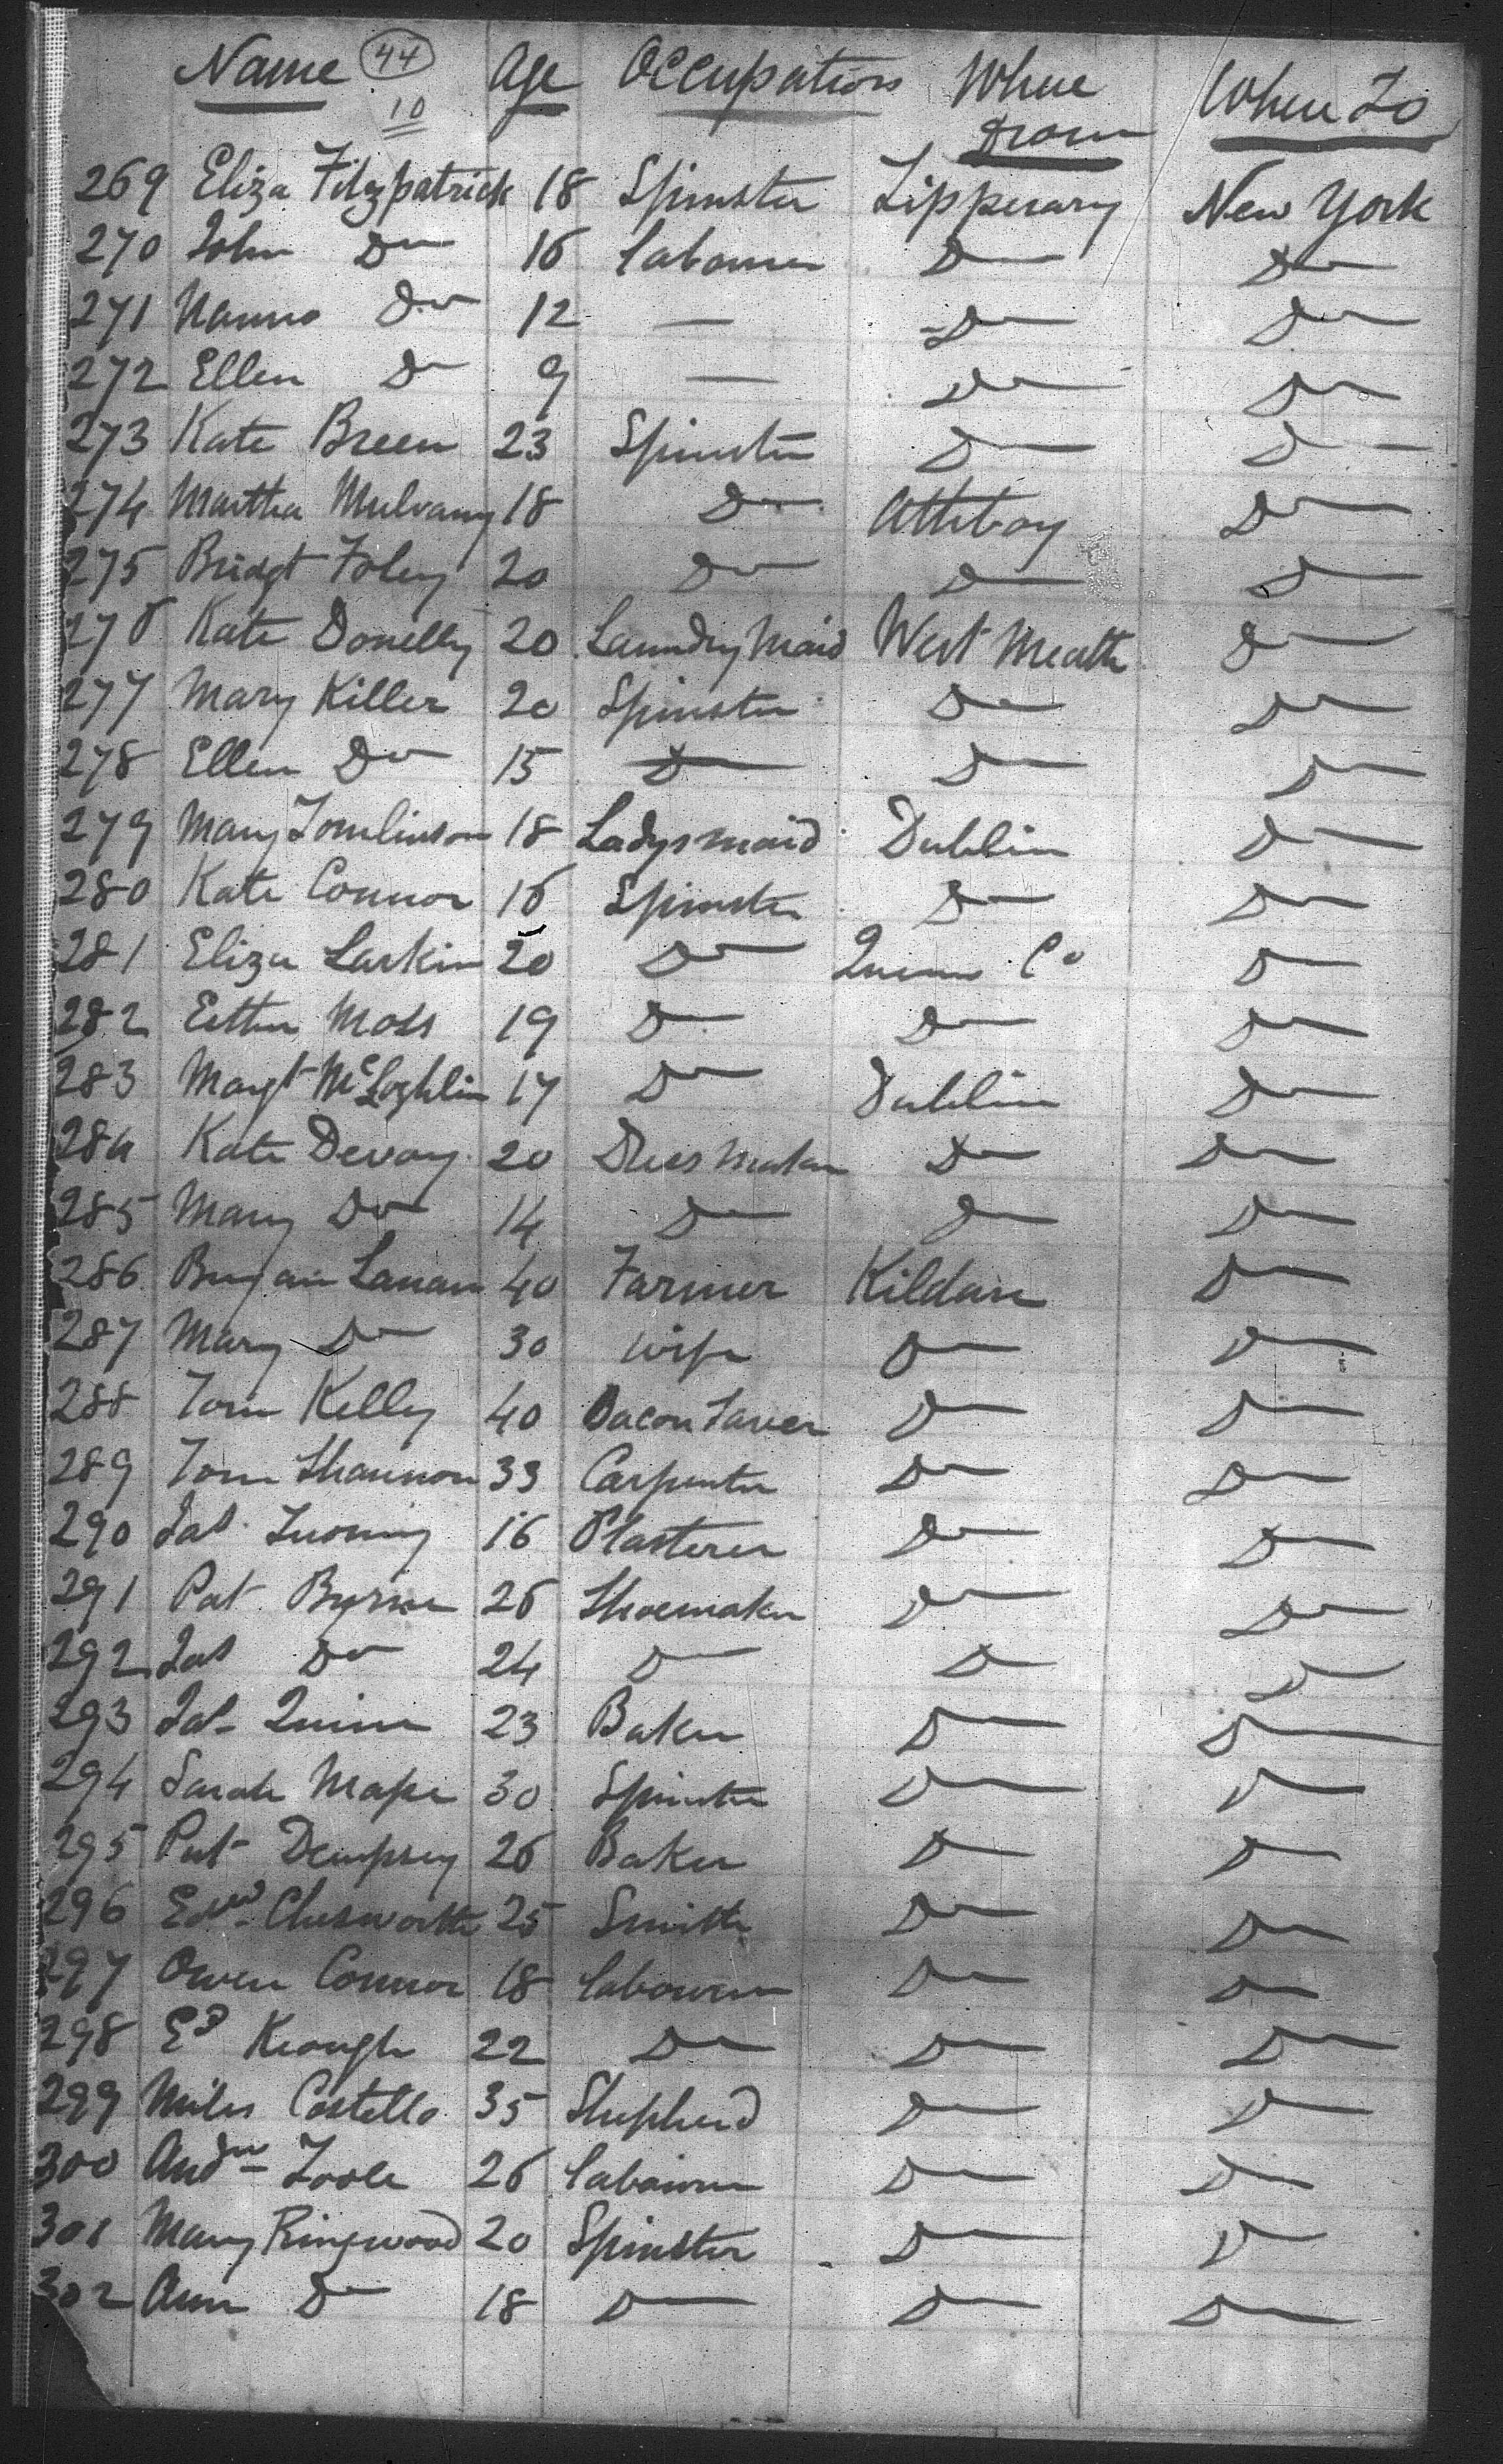 Name (44) Age Occupation Where From Where To
10
269 Eliza Fitzpatrick 18 Spinster Tipperary New York
270 John Do 16 Labourer Do Do
271 Do 12 — Do Do
272 Ellen Do 9 — Do Do
273 Kate Breen 23 Spinster Do Do
274 Martha Mulvany 18 Do Athboy Do
275 Bridgt Foley 20 Do Do Do
276 Kate Donelly 20 Laundry Maid West Meath Do
277 Mary Killer 20 Spinster Do Do
278 Ellen Do 15 Do Do Do
279 Mary Tomlinson 18 Ladysmaid Dublin Do
280 Kate Connor 16 Spinster Do Do
281 Eliza Larkin 20 Do Queens Co Do
282 Esther Moss 19 Do Do Do
283 Margt McLoghlin 17 Do Dublin Do
284 Kate Devoy 20 Dress Maker Do Do
285 Mary Do 14 Do Do Do
286 40 Farmer Kildare Do
287 Mary Do 30 wife Do Do
288 Tom Kelly 40 Bacon Do Do
289 Tom Shannon 33 Carpenter Do Do
290 Jas. 16 Plasterer Do Do
291 Pat Byrne 26 Shoemaker Do Do
292 Jas Do 24 Do Do Do
293 Jas. Quinn 23 Baker Do Do
294 Sarah 30 Spinster Do Do
295 Pat Dempsey 26 Baker Do Do
296 Edwd Chesworth 25 Smith Do Do
297 Owen Connor 18 Labourer Do Do
298 Ed Keough 22 Do Do Do
299 Miles Costello 35 Shepherd Do Do
300 Andw Toole 26 Labourer Do Do
301 Mary Ringwood 20 Spinster Do Do
302 Ann Do 18 Do Do Do